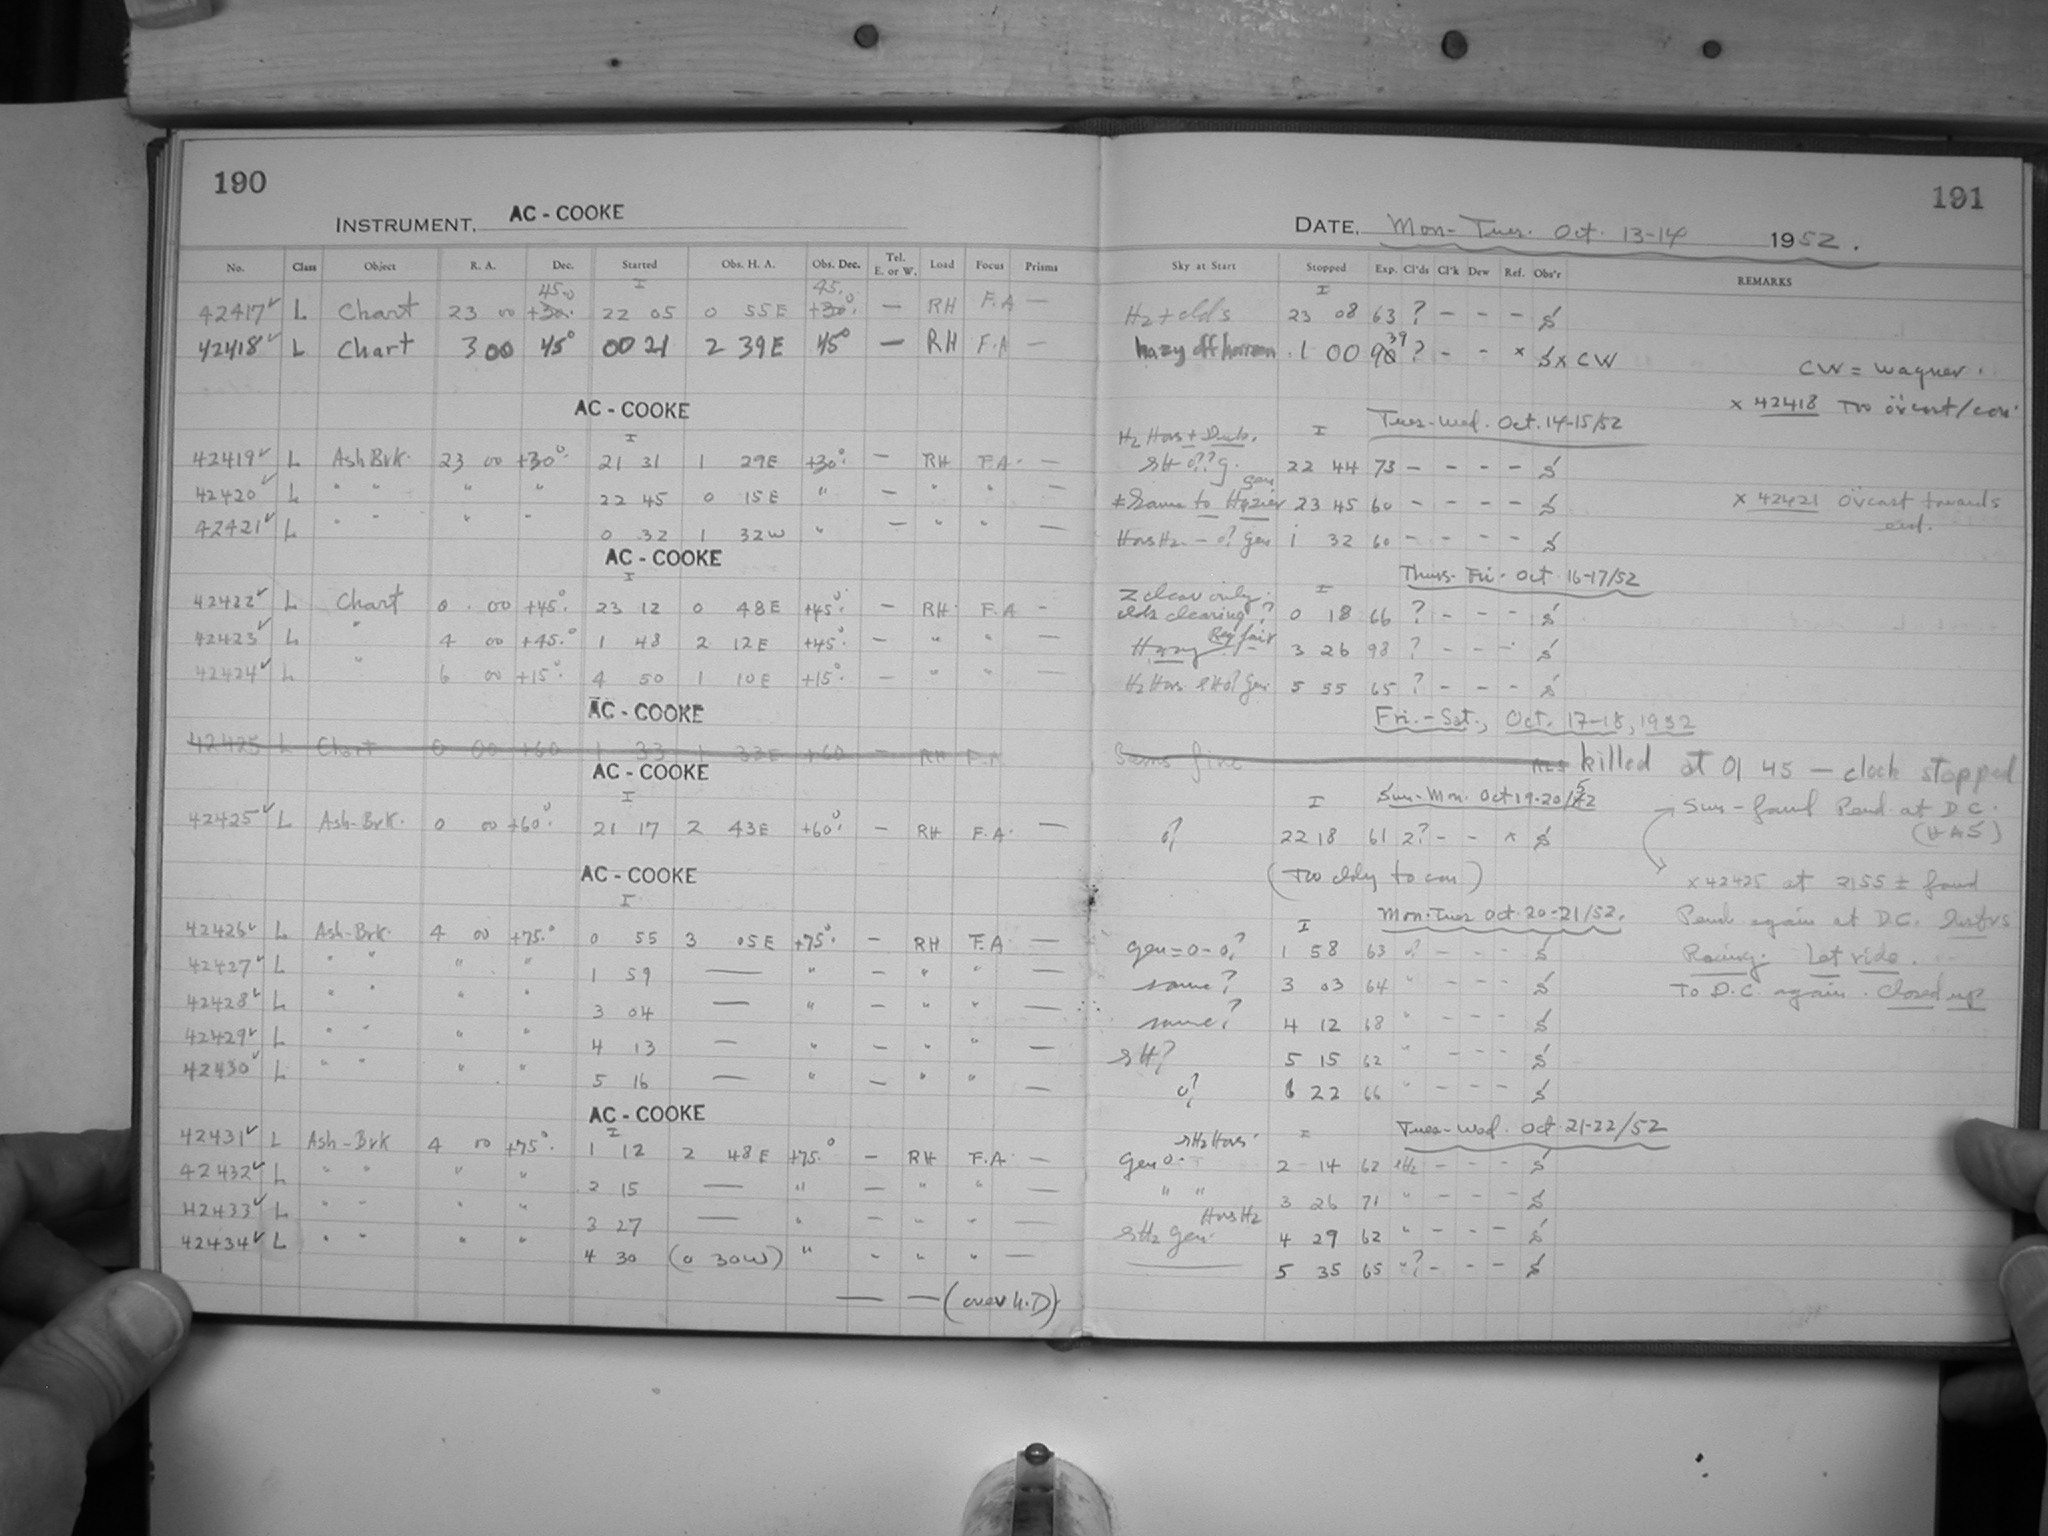 190
INSTRUMENT, AC - COOKE
No. Class Object R. A. Dec. Started Obs. H. A. Obs. Dec. Tel. E. or W. Load Focus Prisms
45.0 I 45.
42417✓ L Chart 23 00 +30. 22 05 0 55E +30° — RH F.A —
42418✓ L Chart 3 00 45° 00 21 2 39E 45° — RH F.A —
AC - COOKE
I
42419✓ L Ash Brk. 23 00 +30° 21 31 1 29E +30° — RH F.A. —
42420✓ L " " " " 22 45 0 15E " — " " —
42421✓ L " " " " 0 32 1 32W " — " " —
AC - COOKE
I
42422✓ L Chart 0 00 +45° 23 12 0 48E +45° — RH F.A —
42423✓ L " 4 00 +45.° 1 48 2 12E +45° — " " —
42424✓ L " 6 00 +15° 4 50 1 10E +15° — " " —
AC - COOKE
42425 L Chart 0 00 +60 1 33 1 33E +60 — RH F.A
AC - COOKE
I
42425✓ L Ash-Brk. 0 00 +60° 21 17 2 43E +60° — RH F.A. —
AC - COOKE
I
42426✓ L Ash-Brk. 4 00 +75.° 0 55 3 05E +75° — RH F.A. —
42427✓ L " " " " 1 59 — " — " " —
42428✓ L " " " " 3 04 — " — " " —
42429✓ L " " " " 4 13 — " — " " —
42430✓ L " " " " 5 16 — " — " " —
AC - COOKE
I
42431✓ L Ash-Brk 4 00 +75° 1 12 2 48E +75.° — RH F.A. —
42432✓ L " " " " 2 15 — " — " " —
42433✓ L " " " " 3 27 — " — " " —
42434✓ L " " " " 4 30 (0 30W) " " " " —
— — (over 4.D)
191
DATE, Mon-Tues. Oct. 13-14 1952.
Sky at Start Stopped Exp. Cl'ds Cl'k Dew Ref. Obs'r REMARKS
I
Hz + clds 23 08 63 ? - - - S
hazy off horizon 1 00 90 39 ? - - x S x CW
CW = Wagner.
x 42418 Too o'cast/con.
Tues-Wed. Oct. 14-15/52
I
22 44 73 - - - - S
± Same to Hazier gen 23 45 60 - - - - S
x 42421 O'vcast towards
Hors Hz - 0? gen 1 32 60 - - - - S
Thurs-Fri- Oct 16-17/52
I
Z clear only.
clds clearing? 0 18 66 ? - - - S
Hazy 3 26 98 ? - - - S
Hz Hors 5 55 65 ? - - - S
Fri.-Sat., Oct. 17-18, 1952
Same fine killed at 01 45 — clock stopped
I Sun-Mon. Oct 19-20/52
Sun-found Pend. at D.C.
(HAS)
0? 22 18 61 2? - - x S
(Too cldy to con)
x 42425 at 2155 ± found
Mon-Tues Oct 20-21/52.
Pend again at D.C.
I
gen = 0 - 0? 1 58 63 0? - - - S
Racing. Let ride.
same? 3 03 64 " - - - S
To D.C. again. Closed up
same? 4 12 68 " - - - S
sH? 5 15 62 " - - - S
0? 6 22 66 " - - - S
Tues-Wed. Oct 21-22/52
I
sHz Hors
gen 0. 2 14 62 sHz - - - S
" " 3 26 71 " - - - S
Hors Hz
sHz gen. 4 29 62 " - - - S
5 35 65 "? - - - S